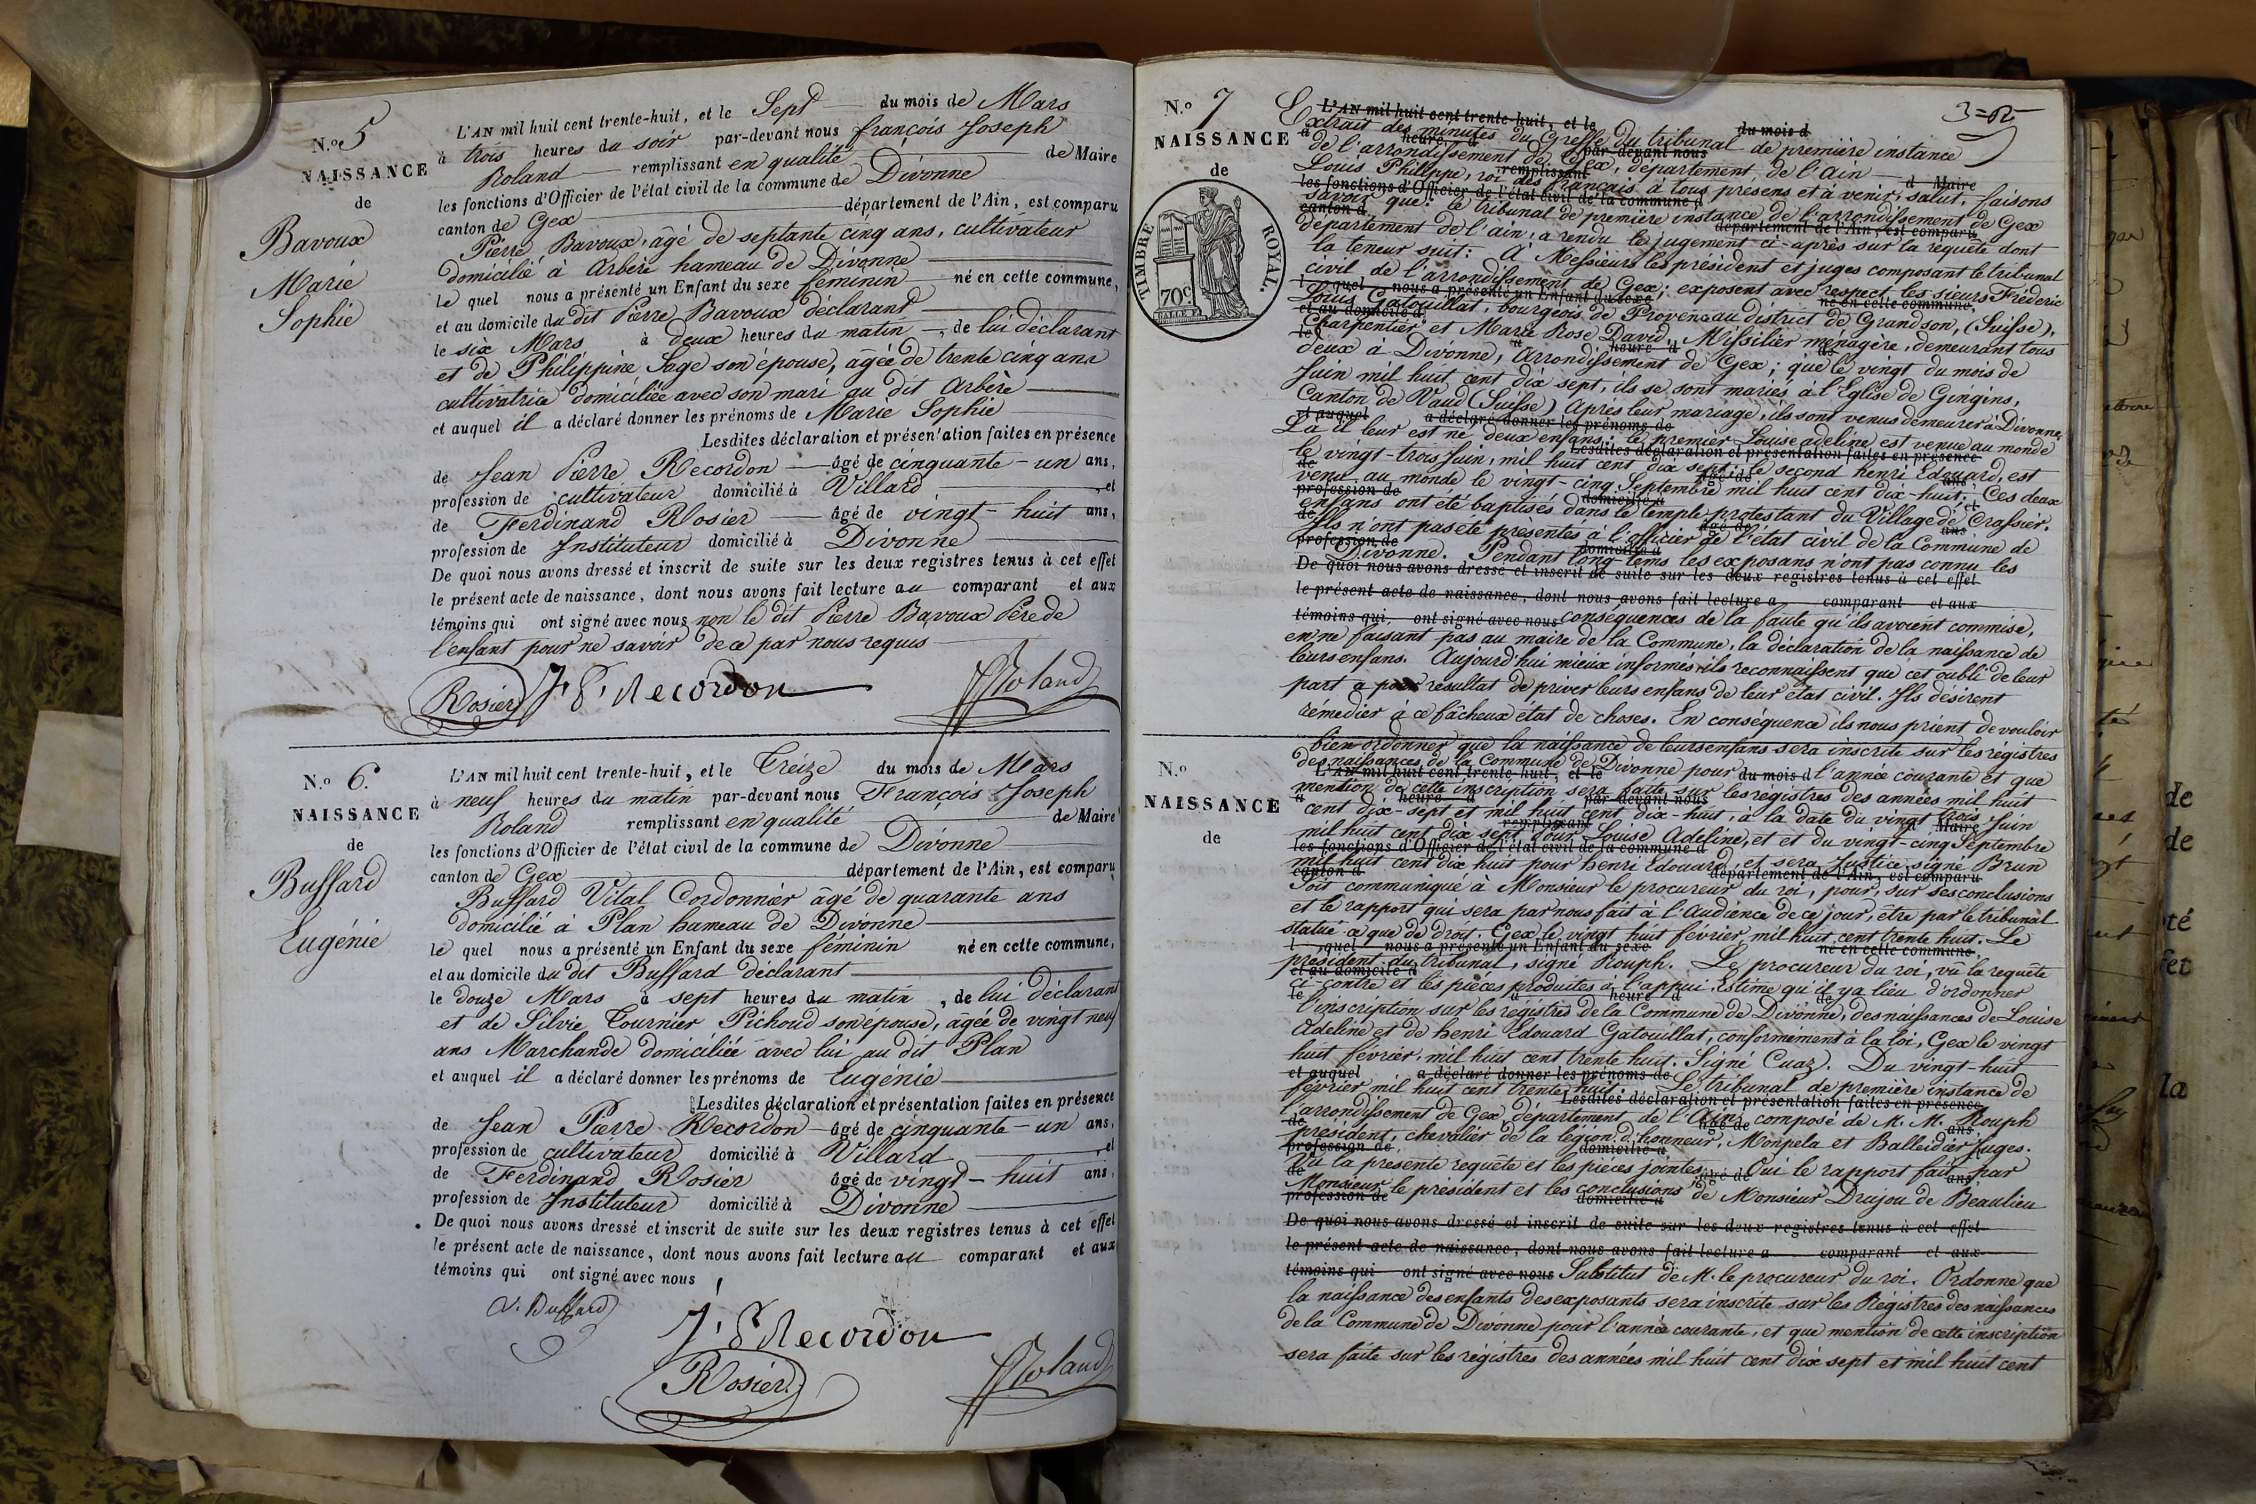 N.o 5
NAISSANCE
de
Bavoux
Marie
Sophie
L'AN mil huit cent trente-huit, et le Sept du mois de Mars
à trois heures du soir par-devant nous françois Joseph
Roland remplissant en qualité de Maire
les fonctions d'Officier de l'état civil de la commune de Divonne
canton de Gex département de l'Ain, est comparu
Pierre Bavoux, âgé de septante cinq ans, cultivateur
domicilié à Arbère hameau de Divonne
le quel nous a présenté un Enfant du sexe féminin né en cette commune,
et au domicile du dit Pierre Bavoux déclarant
le six Mars à deux heures du matin, de lui déclarant
et de Philippine Sage son épouse, agée de trente cinq ans
cultivatrice domiciliée avec son mari au dit Arbère
et auquel il a déclaré donner les prénoms de Marie Sophie
Lesdites déclaration et présentation faites en présence
de Jean Pierre Recordon âgé de cinquante-un ans,
profession de cultivateur domicilié à Villard, et
de Ferdinand Rosier âgé de vingt-huit ans,
profession de Instituteur domicilié à Divonne
De quoi nous avons dressé et inscrit de suite sur les deux registres tenus à cet effet
le présent acte de naissance, dont nous avons fait lecture au comparant et aux
témoins qui ont signé avec nous non le dit Pierre Bavoux Père de
l'enfant pour ne savoir de ce par nous requis
Rosier J. P. Recordon Roland
N.o 6.
NAISSANCE
de
Buffard
Eugénie
L'AN mil huit cent trente-huit, et le Treize du mois de Mars
à neuf heures du matin par-devant nous François Joseph
Roland remplissant en qualité de Maire
les fonctions d'Officier de l'état civil de la commune de Divonne
canton de Gex département de l'Ain, est comparu
Buffard Vital Cordonnier âgé de quarante ans
domicilié à Plan hameau de Divonne
le quel nous a présenté un Enfant du sexe féminin né en cette commune,
et au domicile du dit Buffard déclarant
le douze Mars à sept heures du matin, de lui déclarant
et de Silvie Tournier Pichoud son épouse, âgée de vingt neuf
ans Marchande domiciliée avec lui au dit Plan
et auquel il a déclaré donner les prénoms de Eugénie
Lesdites déclaration et présentation faites en présence
de Jean Pierre Recordon âgé de cinquante-un ans,
profession de cultivateur domicilié à Villard, et
de Ferdinand Rosier âgé de vingt-huit ans,
profession de Instituteur domicilié à Divonne
De quoi nous avons dressé et inscrit de suite sur les deux registres tenus à cet effet
le présent acte de naissance, dont nous avons fait lecture au comparant et aux
témoins qui ont signé avec nous
V. Buffard
J. P. Recordon
Rosier Roland
N.o 7
NAISSANCE
de
TIMBRE ROYAL.
70c
L'AN mil huit cent trente-huit, et le du mois d
Extrait des minutes du Greffe du tribunal de première instance
à heure d par-devant nous
de l'arrondissement de Gex, département de l'Ain
remplissant d Maire
Louis Philippe, roi des français à tous présens et à venir, salut, faisons
les fonctions d'Officier de l'état civil de la commune d
savoir que: le tribunal de première instance de l'arrondissement de Gex
canton d département de l'Ain, est comparu
département de l'ain, a rendu le jugement ci-après sur la requête dont
la teneur suit: A Messieurs les président et juges composant le tribunal
civil de l'arrondissement de Gex; exposent avec respect les sieurs Fréderic
l quel nous a présenté un Enfant du sexe né en cette commune,
Louis Gatouillat, bourgeois de Provence au district de Grandson, (Suisse),
et au domicile d
Charpentier et Marie Rose David, Missilier ménagère, demeurant tous
le à heure d de
deux à Divonne, Arrondissement de Gex; que le vingt du mois de
Juin mil huit cent dix sept, ils se sont mariés à l'Eglise de Gingins,
Canton de Vaud (Suisse) Après leur mariage, ils sont venus demeurer à Divonne
et auquel a déclaré donner les prénoms de
Là il leur est né deux enfans; le premier Louise adeline est venue au monde
Lesdites déclaration et présentation faites en présence
le vingt-trois Juin, mil huit cent dix sept; le second henri Edouard, est
de âgé de ans,
venu au monde le vingt-cinq Septembre mil huit cent dix-huit; Ces deux
profession de domicilié à , et
enfans ont été baptisés dans le temple protestant du Village de Crassier.
de âgé de ans
Ils n'ont pas été présentés à l'officier de l'état civil de la Commune de
profession de domicilié à
Divonne. Pendant long-tems les exposans n'ont pas connu les
De quoi nous avons dressé et inscrit de suite sur les deux registres tenus à cet effet
le présent acte de naissance, dont nous avons fait lecture a comparant et aux
témoins qui ont signé avec nous conséquences de la faute qu'ils avoient commise,
en ne faisant pas au maire de la Commune, la déclaration de la naissance de
leurs enfans. Aujourd'hui mieux informés, ils reconnaissent que cet oubli de leur
part a pour résultat de priver leurs enfans de leur état civil. Ils désirent
rémedier à ce fâcheux état de choses. En conséquence ils nous prient de vouloir
bien ordonner que la naissance de leurs enfans sera inscrite sur les régistres
N.o
NAISSANCE
de
des naissances de la Commune de Divonne pour l'année courante et que
L'AN mil huit cent trente-huit, et le du mois d
mention de cette inscription sera faite sur les régistres des années mil huit
à heure d par-devant nous
cent dix-sept et mil huit cent dix-huit, à la date du vingt trois Juin
remplissant d Maire
mil huit cent dix sept pour Louise Adeline, et et du vingt-cinq Septembre
les fonctions d'Officier de l'état civil de la commune d
mil huit cent dix huit pour henri Edouard, et sera Justice. signé Brun
canton d département de l'Ain, est comparu
Soit communiqué à Monsieur le procureur du roi, pour, sur ses conclusions
et le rapport qui sera par nous fait à l'Audience de ce jour, être par le tribunal
statué ce que de droit. Gex le vingt huit février mil huit cent trente huit. Le
l quel nous a présenté un Enfant du sexe né en cette commune
président du tribunal, signé Rouph. Le procureur du roi, vû la requête
et au domicile d
ci-contre et les pièces produites à l'appui, Estime qu'il y a lieu d'ordonner
le à heure d de
l'inscription sur les régistres de la Commune de Divonne, des naissances de Louise
Adeline et de henri Edouard Gatouillat, conformément à la loi, Gex le vingt
huit février, mil huit cent trente huit. Signé Cuaz. Du vingt-huit
et auquel a déclaré donner les prénoms de
février mil huit cent trente huit. Le tribunal de première instance de
Lesdites déclaration et présentation faites en présence
l'arrondissement de Gex département de l'Ain, composé de M. M. Rouph
de âgé de ans
président, chevalier de la légion d'honneur, Monpela et Balleidier Juges.
profession de domicilié à
Vu la présente requête et les pièces jointes, Oui le rapport fait par
de âgé de ans
Monsieur le président et les conclusions de Monsieur Drujou de Beaulieu
profession de domicilié à
De quoi nous avons dressé et inscrit de suite sur les deux registres tenus à cet effet
le présent acte de naissance, dont nous avons fait lecture a comparant et aux
témoins qui ont signé avec nous Substitut de M. le procureur du roi. Ordonne que
la naissance des enfants des exposants sera inscrite sur les Régistres des naissances
de la Commune de Divonne pour l'année courante, et que mention de cette inscription
sera faite sur les régistres des années mil huit cent dix sept et mil huit cent